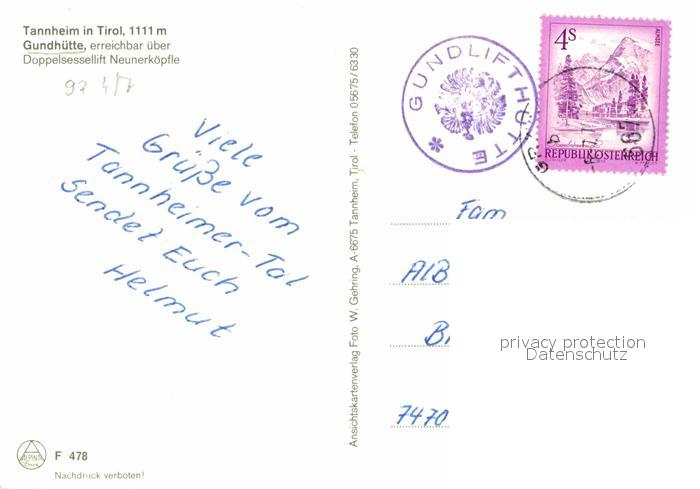 Tannheim in Tirol, 1111 m
Gundhütte, erreichbar über
Doppelsessellift Neunerköpfle
Viele
Grüße vom
Tannheimer-Tal
sendet Euch
Helmut
F 478
Nachdruck verboten!
Ansichtskartenverlag Foto W. Gehring, A-6675 Tannheim, Tirol · Telefon 05675/6330
GUNDLIFTHÜTTE
4S
ALMSEE
REPUBLIK ÖSTERREICH
Fam
AlB
7470
privacy protection
Datenschutz